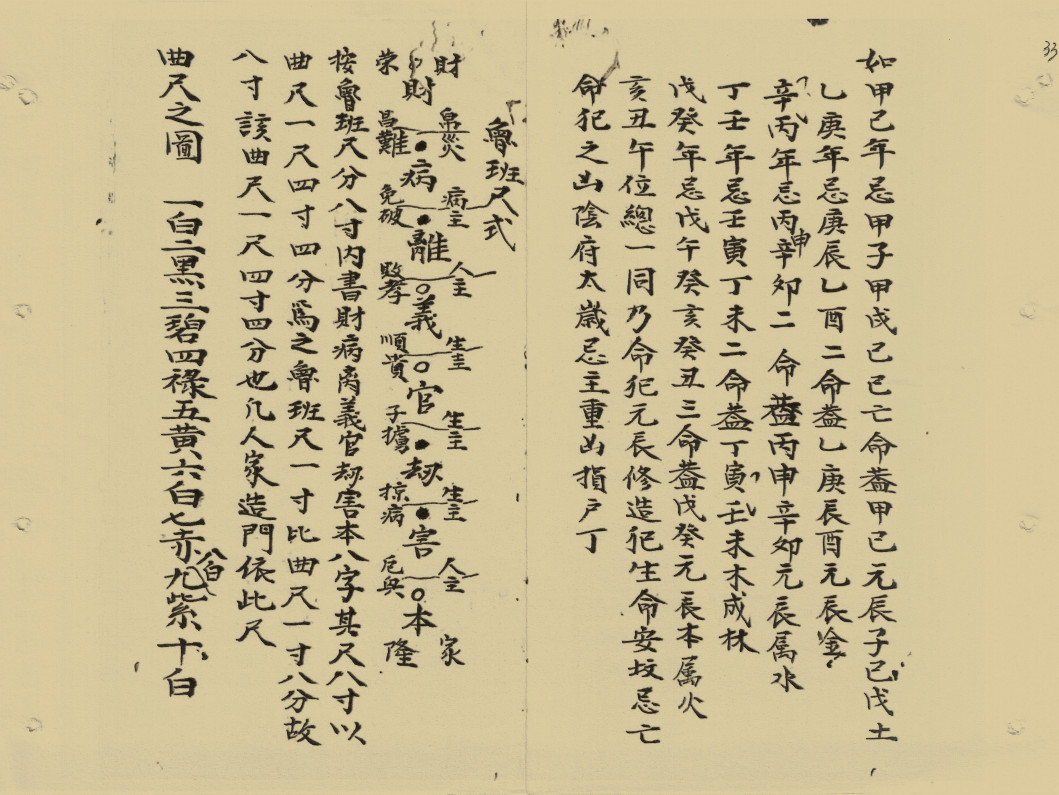 33
如甲己年忌甲子甲戌己己亡命蓋甲己元辰子己戊土
乙庚年忌庚辰乙酉二命蓋乙庚辰酉元辰金
辛丙年忌丙申辛卯二命蓋丙申辛卯元辰属水
丁壬年忌壬寅丁未二命蓋丁寅壬未木成林
戊癸年忌戊午癸亥癸丑三命蓋戊癸元辰本属火
亥丑午位總一同乃命犯元辰修造犯生命安坟忌亡
命犯之凶陰府太歲忌主重凶損户丁
魯班尺式
財 帛災 病主 人主 生主 生主 生主 人主 家
財病離義官刼害本
荣 昌難 免破 敗孝 順貴 子擄 掠病 厄興 隆
按魯班尺分八寸内書財病离義官刼害本八字其尺八寸以
曲尺一尺四寸四分爲之魯班尺一寸比曲尺一寸八分故
八寸該曲尺一尺四寸四分也凢人家造門依此尺
曲尺之圖 一白二黑三碧四禄五黄六白七赤八白九紫十白